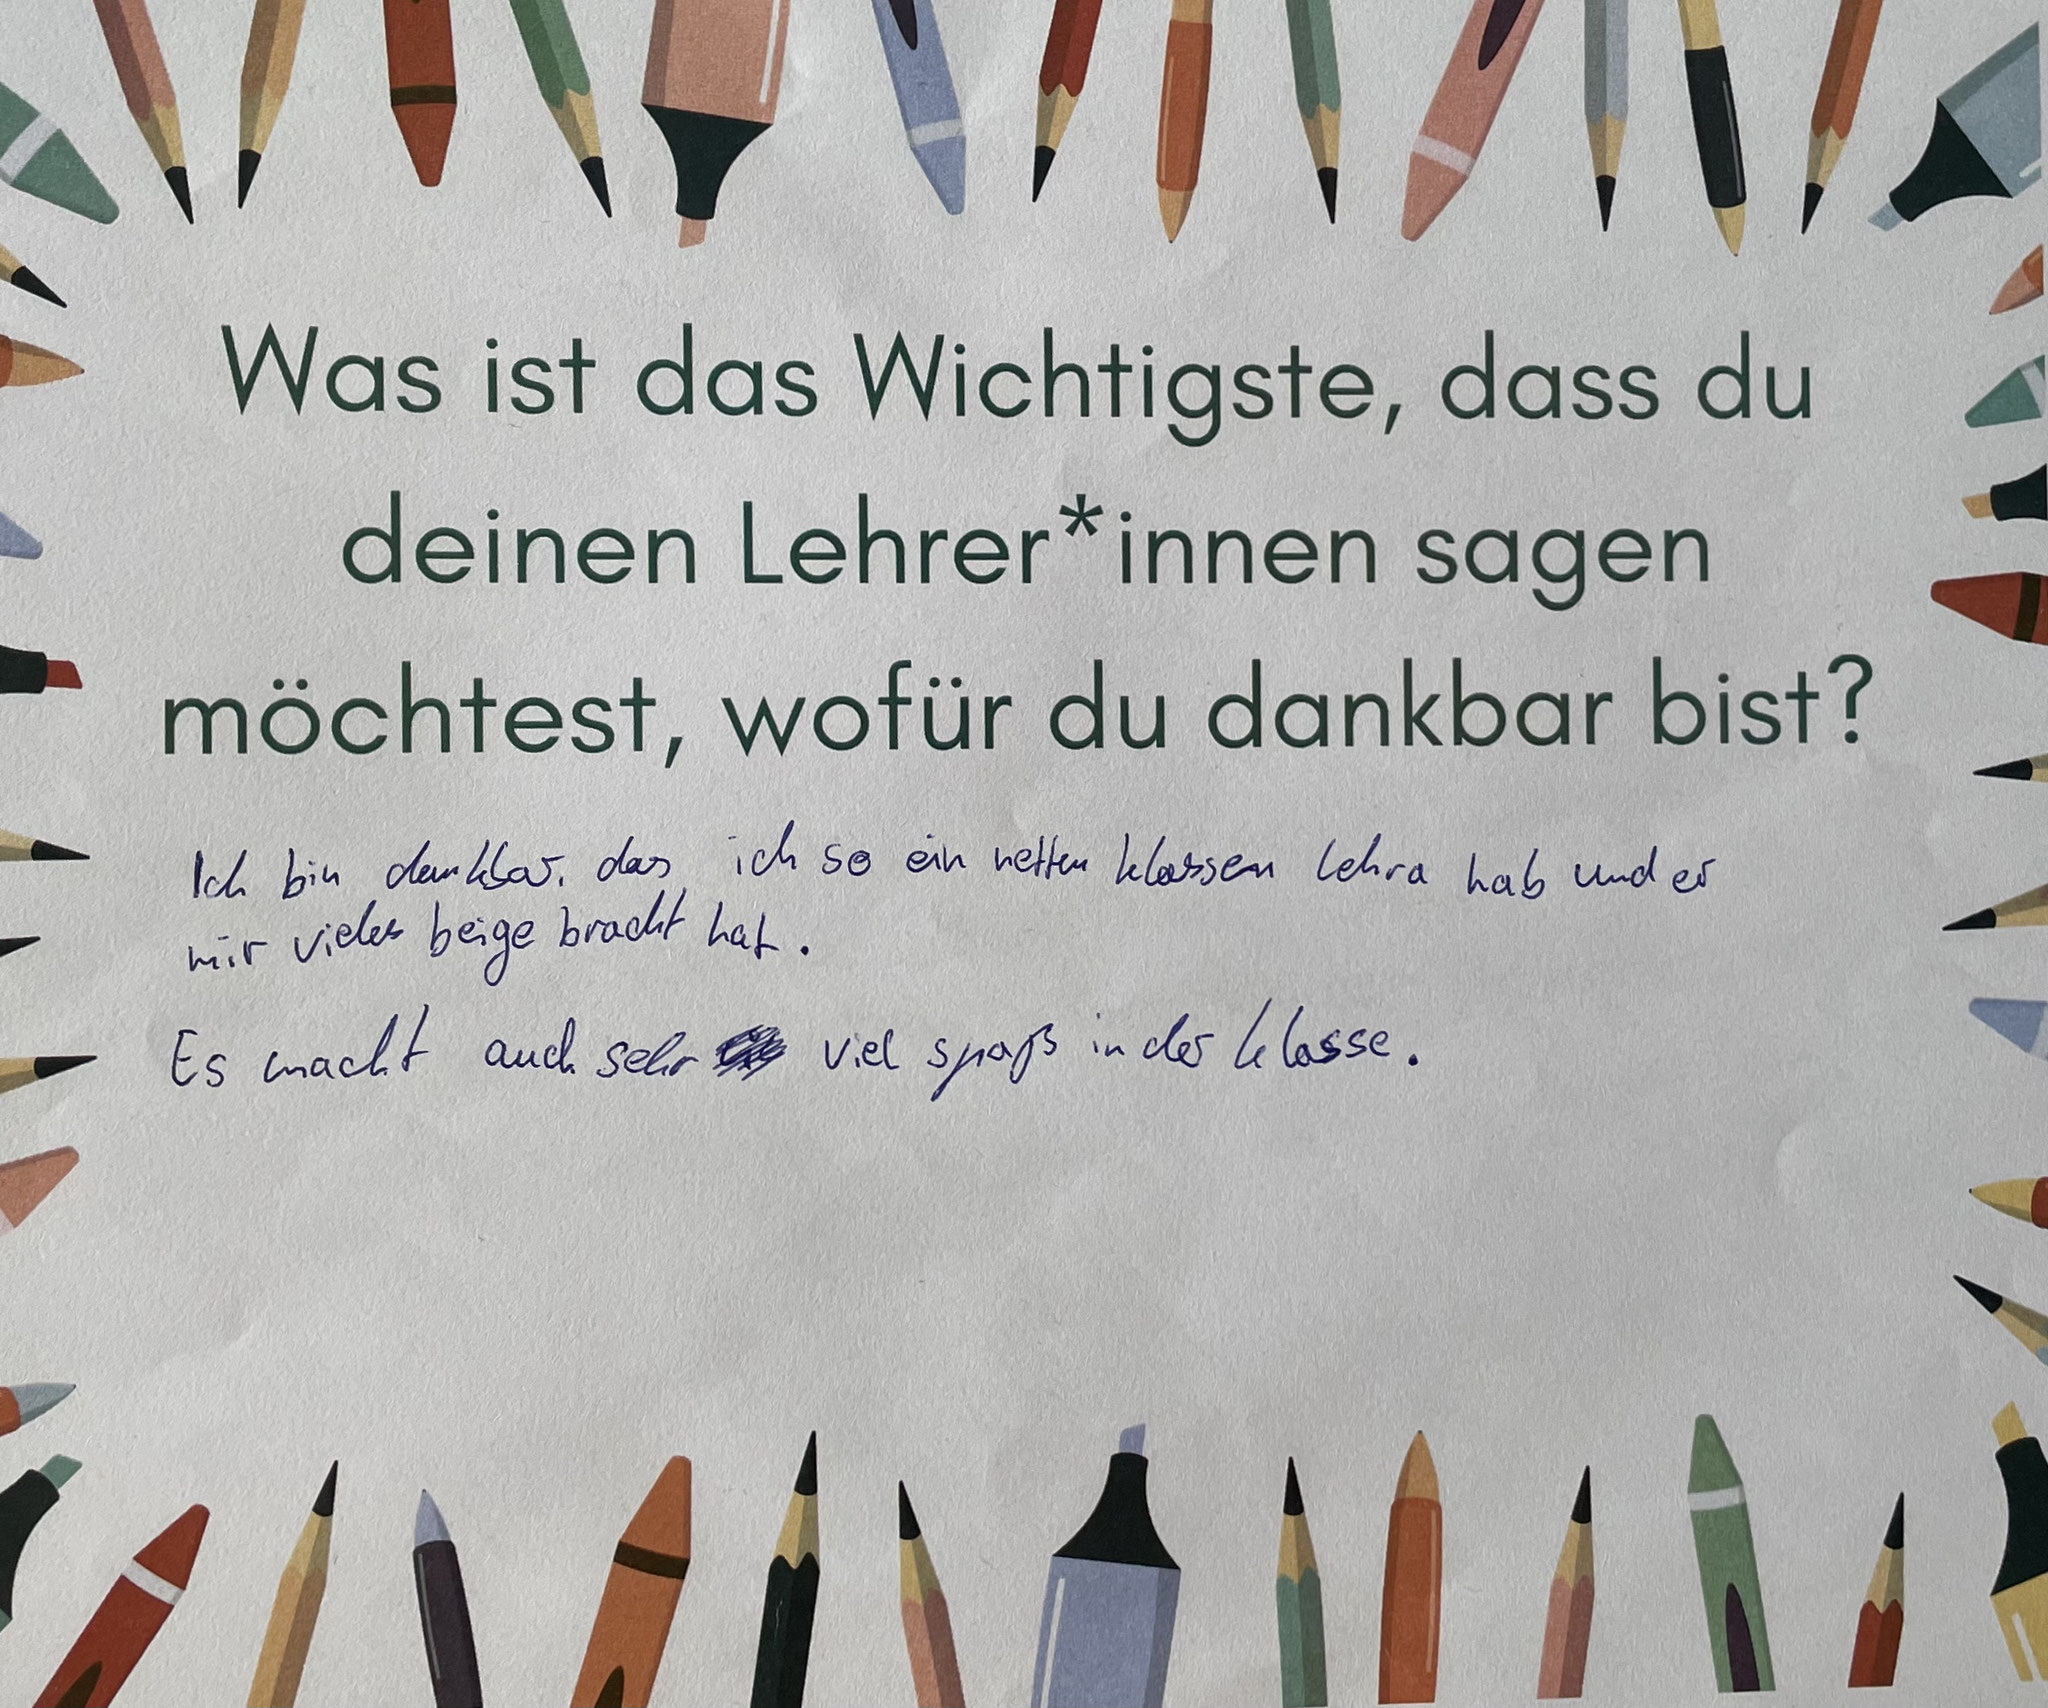 Was ist das Wichtigste, dass du
deinen Lehrer*innen sagen
möchtest, wofür du dankbar bist?
Ich bin dankbar, das ich so ein netten klassen lehra hab und er
mir vieles beige bracht hat.
Es macht auch sehr viel spaß in der klasse.